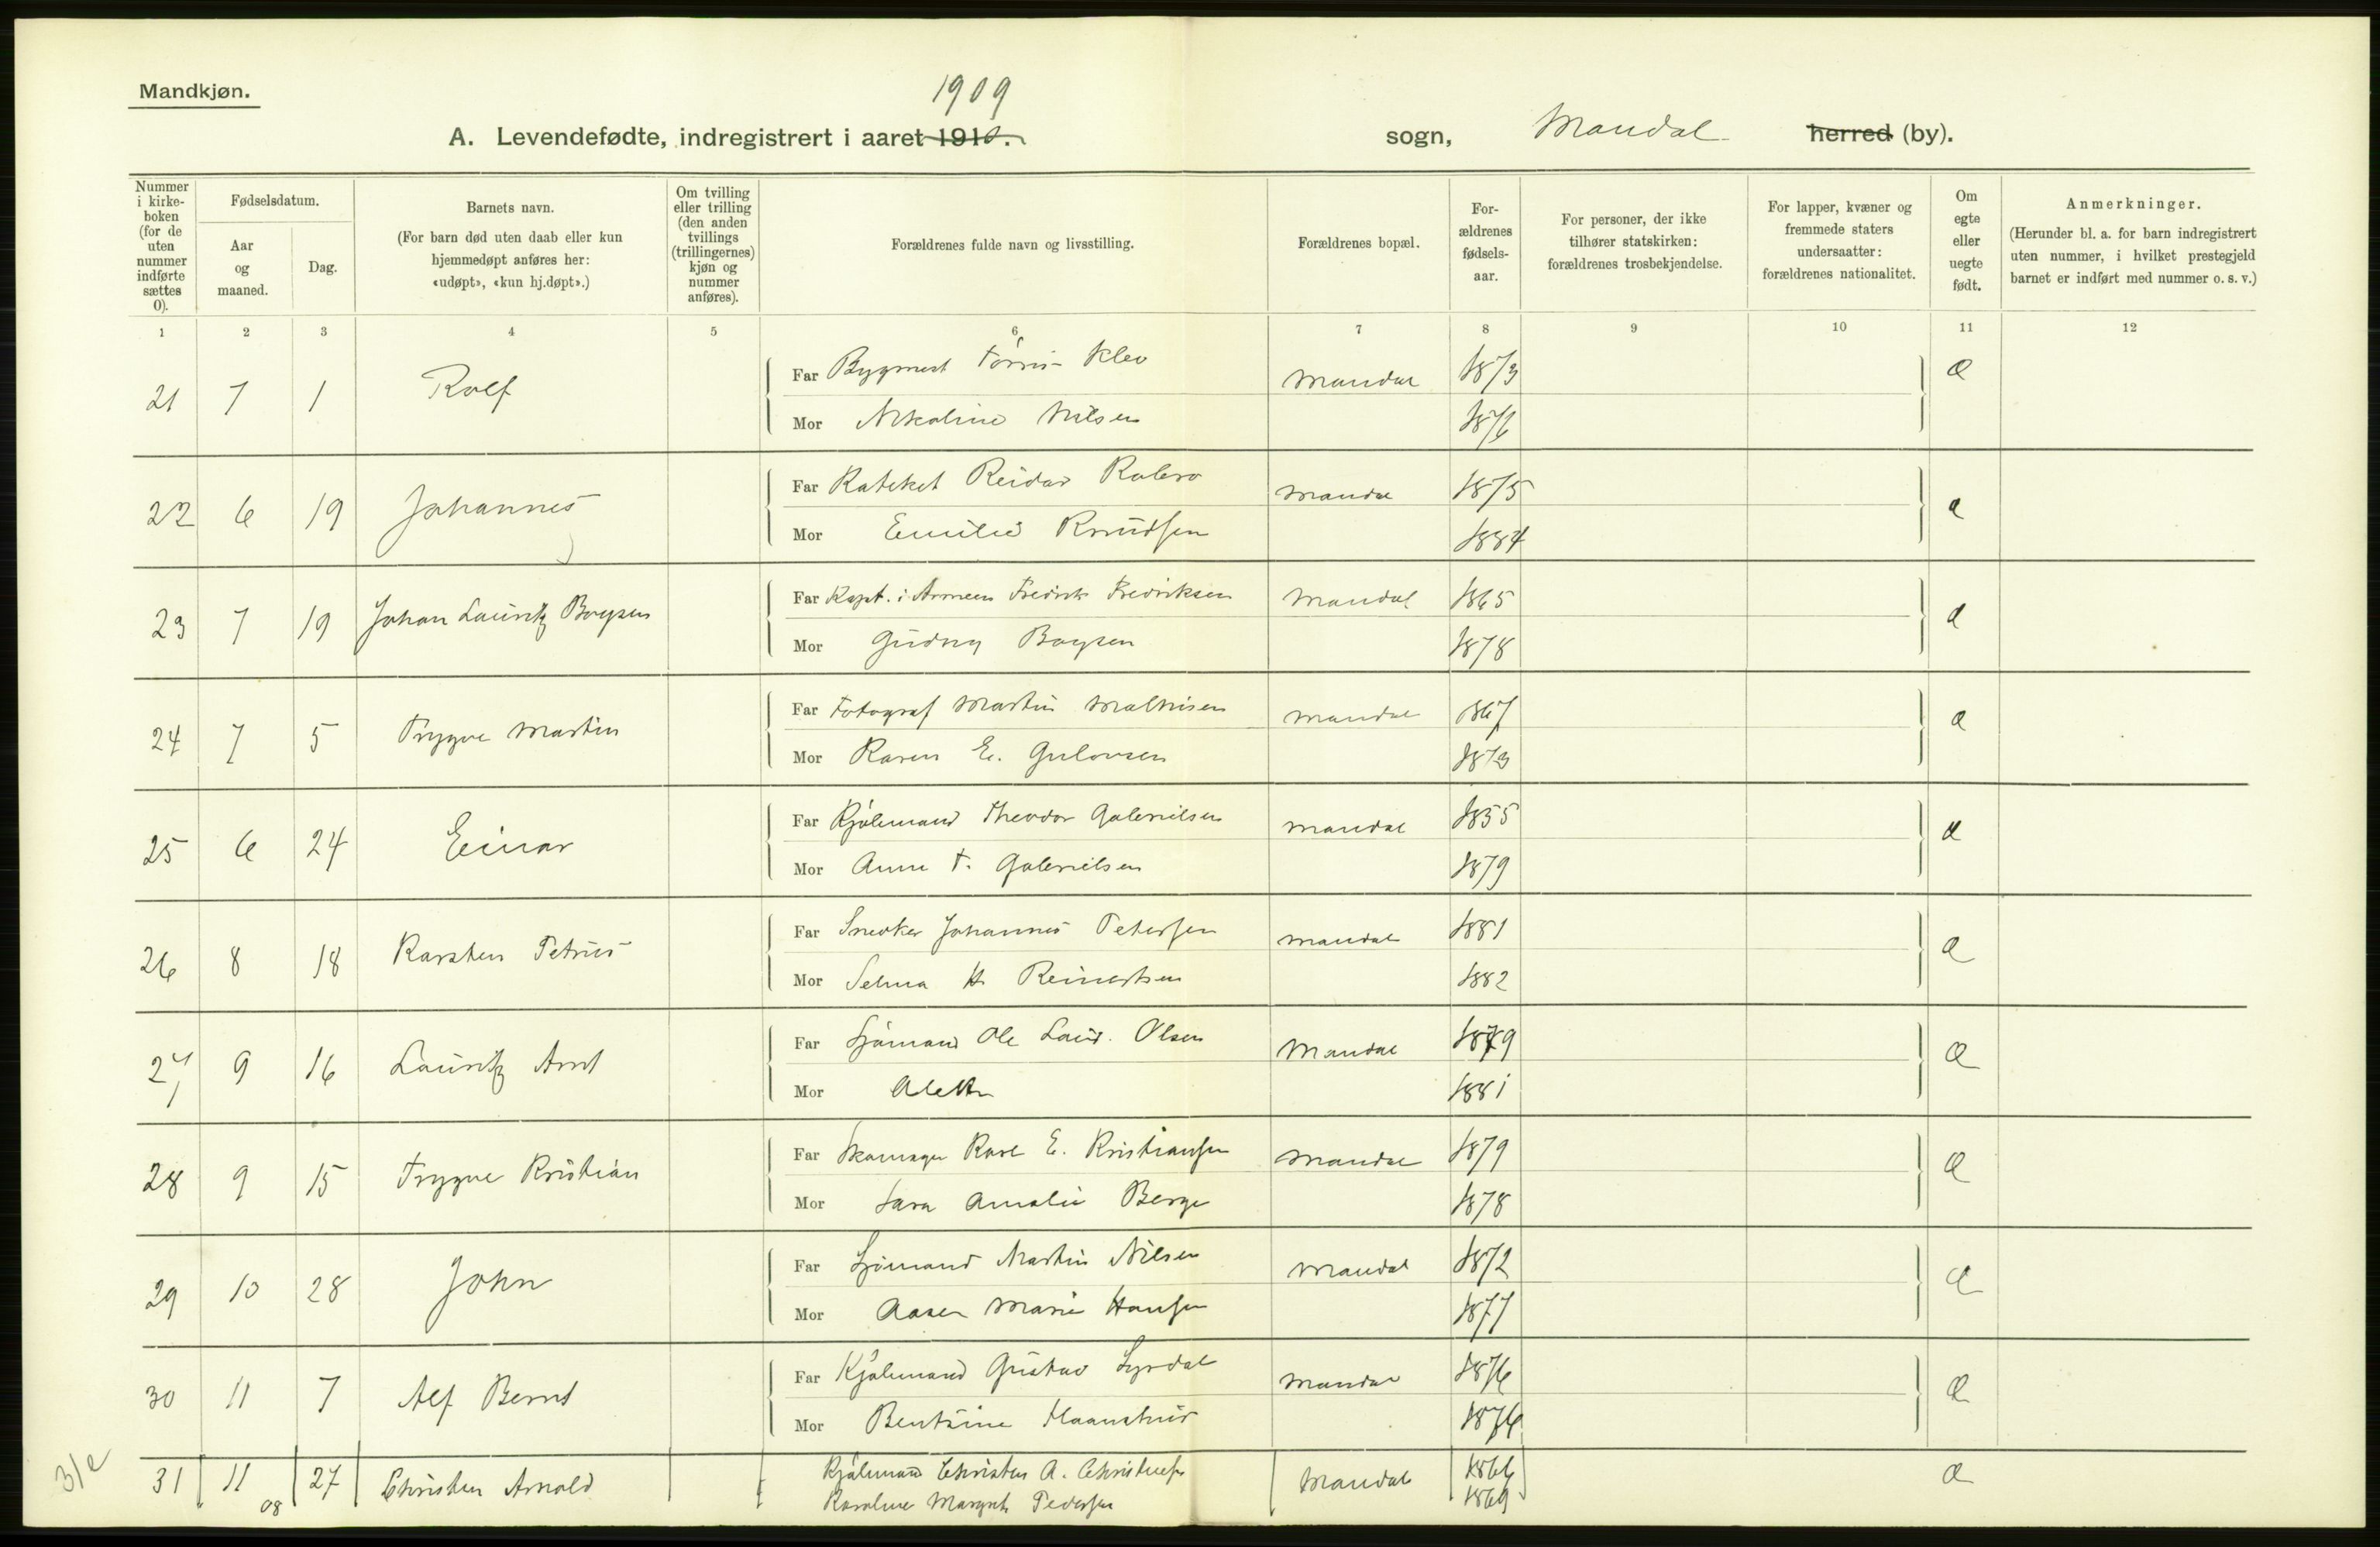 Mandkjøn.
1909
A. Levendefødte, indregistrert i aaret 1910. sogn, Mandal herred (by).
Nummer i kirkeboken (for de uten nummer indførte sættes 0).
Fødselsdatum.
Aar og maaned.
Dag.
Barnets navn.
(For barn død uten daab eller kun hjemmedøpt anføres her: «udøpt», «kun hj.døpt».)
Om tvilling eller trilling (den anden tvillings (trillingernes) kjøn og nummer anføres).
Forældrenes fulde navn og livsstilling.
Forældrenes bopæl.
For-ældrenes fødsels-aar.
For personer, der ikke tilhører statskirken: forældrenes trosbekjendelse.
For lapper, kvæner og fremmede staters undersaatter: forældrenes nationalitet.
Om egte eller uegte født.
Anmerkninger.
(Herunder bl. a. for barn indregistrert uten nummer, i hvilket prestegjeld barnet er indført med nummer o. s. v.)
1 2 3 4 5 6 7 8 9 10 11 12
21 7 1 Rolf Far Bygmest Tørris Klev Mandal 1873 Æ
Mor Nikoline Nilsen 1876
22 6 19 Johannes Far Kateket Reidar Mandal 1875 Æ
Mor Emilie Knudsen 1884
23 7 19 Johan Lauritz Boysen Far Kapt. i Armeen Fredrik Fredriksen Mandal 1865 Æ
Mor Gudny Boysen 1878
24 7 5 Trygve Martin Far Fotograf Martin Mathisen Mandal 1867 Æ
Mor Karen E. Gulovsen 1873
25 6 24 Einar Far Kjølemand Theodor Gabrielsen Mandal 1855 Æ
Mor Anne T. Gabrielsen 1879
26 8 18 Karsten Petrus Far Snedker Johannes Petersen Mandal 1881 Æ
Mor Selma H. Reinertsen 1882
27 9 16 Lauritz Arnt Far Sjømand Ole Laur. Olsen Mandal 1879 Æ
Mor Alette 1881
28 9 15 Trygve Kristian Far Skomager Karl E. Kristiansen Mandal 1879 Æ
Mor Sara Amalie Berge 1878
29 10 28 John Far Sjømand Martin Nilsen Mandal 1872 Æ
Mor Aasen Marie Hansen 1877
30 11 7 Alf Bernt Far Kjølemand Gustav Syrdal Mandal 1876 Æ
Mor Bentsine 1876
31 11 08 27 Christen Arnold Kjølemand Christen A. Mandal 1866 Æ
Karoline Margrete Pedersen 1869